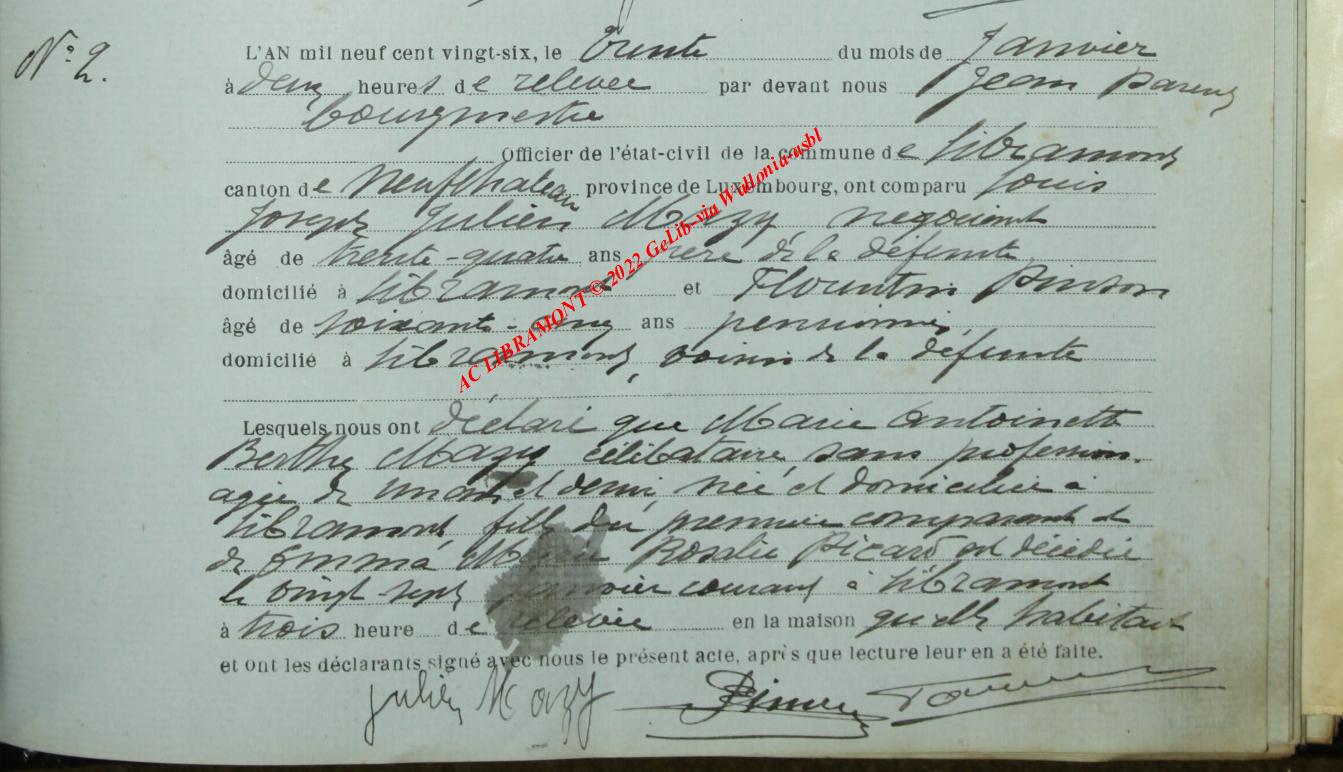 N° 2.
L'AN mil neuf cent vingt-six, le trente du mois de Janvier
à deux heures de relevée par devant nous Jean
bourgmestre
Officier de l'état-civil de la commune de Libramont
canton de Neufchateau province de Luxembourg, ont comparu Louis
Joseph Julien Mazy, négociant
âgé de trente-quatre ans père de la défunte
domicilié à Libramont et Florentin Pinson
âgé de soixante-cinq ans pensionné,
domicilié à Libramont, voisin de la défunte
Lesquels nous ont déclaré que Marie Antoinette
Berthe Mazy célibataire sans profession
agée de un an et demi née et domiciliée à
Libramont, fille du premier comparant et
de Emma Rosalie Picard est décédée
le vingt sept janvier courant à Libramont
à trois heure de relevée en la maison qu'elle habitait
et ont les déclarants signé avec nous le présent acte, après que lecture leur en a été faite.
Julien Mazy
AC LIBRAMONT © 2022 GeLib-via Wallonia-asbl